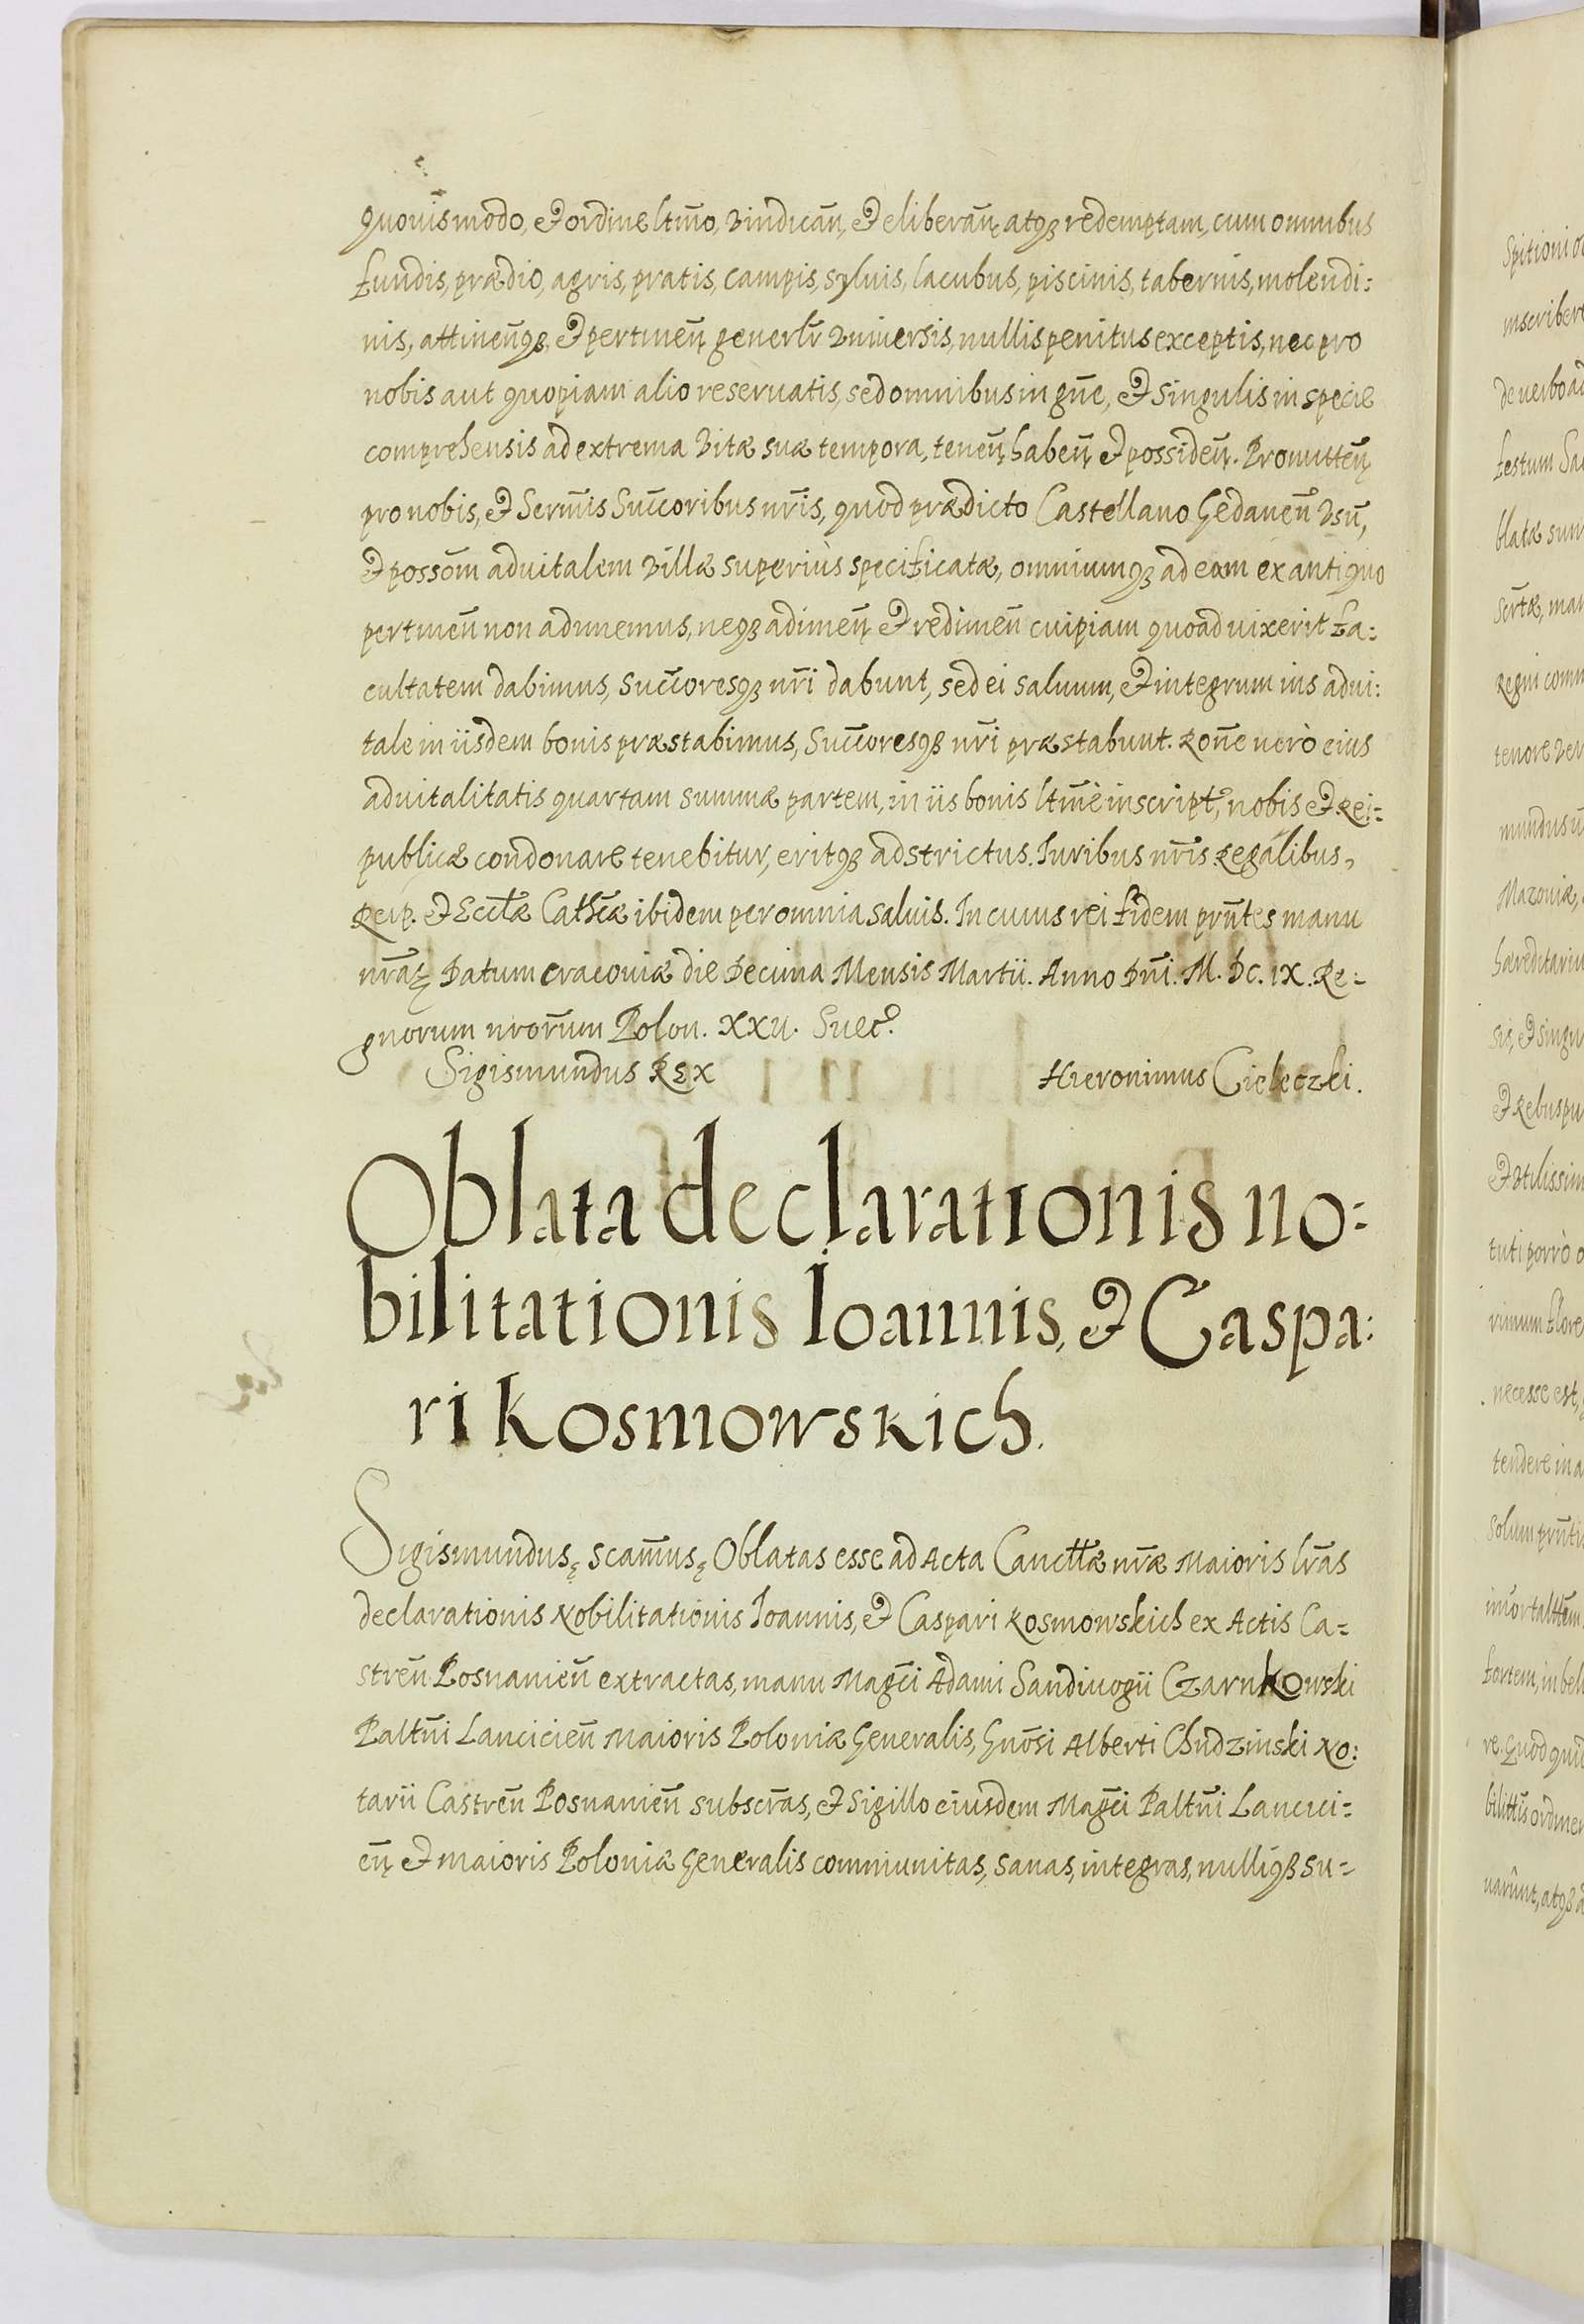 quouismodo, et ordine ltm̃o, vindicañ, et eliberañ, atqꝫ redemptam, cum omnibus
fundis, prædio, agris, pratis, campis, syluis, lacubus, piscinis, tabernis, molendi:
nis, attineñqꝫ, et pertineñ generlr̃ vniuersis, nullis penitus exceptis, nec pro
nobis aut quopiam alio reseruatis, sed omnibus in gñe, et singulis in specie
comprehensis ad extrema vitæ suæ tempora, teneñ, habeñ et possideñ. Promitteñ
pro nobis, et Serm̃is Succ̃oribus nr̃is, quod prædicto Castellano Gedaneñ vsũ,
et possom̃ aduitalem villæ superiùs specificatæ, omniumqꝫ ad eam ex antiquo
pertineñ non adimemus, neqꝫ adimeñ et redimeñ cuipiam quoad uixerit fa:
cultatem dabimus, Succ̃oresqꝫ nr̃i dabunt, sed ei saluum, et integrum ius adui:
tale in iisdem bonis præstabimus, Succ̃oresqꝫ nr̃i præstabunt. Roñe uerò eius
aduitalitatis quartam summæ partem, in iis bonis ltm̃è inscript, nobis et Rei=
publicæ condonare tenebitur, eritqꝫ adstrictus. Iuribus nr̃is Regalibus,
Reip. et Eccłæ Cathcæ ibidem per omnia saluis. In cuius rei fidem pñtes manu
nr̃a ꝫ Datum Cracouiæ die Decima Mensis Martii. Anno Dñi. M. DC. IX. Re=
gnorum nror̃um Polon. XXII. Suec.
Sigismundus REX Hieronimus Cieleczki.
Oblata declarationis no:
bilitationis Ioannis, et Caspa:
ri Kosmowskich.
Sigismundus ꝫ Scam̃us ꝫ Oblatas esse ad Acta Canctłæ nr̃æ Maioris lr̃as
declarationis Nobilitationis Ioannis, et Caspari Kosmowskich ex Actis Ca=
streñ Posnanieñ extractas, manu Magc̃i Adami Sandiuogii Czarnkowski
Paltñi Lancicieñ Maioris Poloniæ Generalis, Gnõsi Alberti Chudzinski No:
tarii Castreñ Posnanieñ subscr̃as, et Sigillo eiusdem Magc̃i Paltñi Lancici=
eñ et maioris Poloniæ Generalis communitas, sanas, integras, nulliqꝫ su=